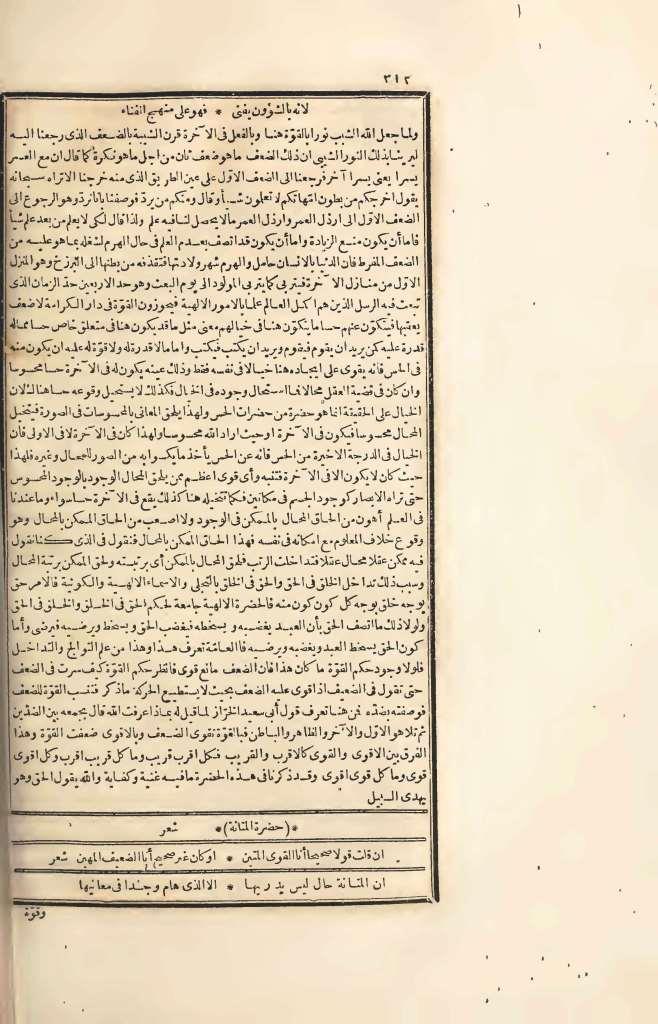 ٣١٢
لانه بالشؤون يفنى * فهو على منهج انفناء
ولما جعل الله الشيب نورا بالقوّة هنا وبالفعل فى الآخرة قرن الشيبة بالضعف الذى رجعنا اليه
ليرينا بذلك النور الشيبى ان ذلك الضعف ما هو ضعف ثان من اجل ما هو نكرة كما قال ان مع العسر
يسرا يعنى يسرا آخر فرجعنا الى الضعف الاول على عين الطريق الذى منه خرجنا الاتراه سبحانه
يقول اخرجكم من بطون امّهاتكم لا تعلمون شيأ وقال ومنكم من يردّ فوصفنا بانا نردّ وهو الرجوع الى
الضعف الاول الى ارذل العمر وارذل العمر ما لا يحصل لنا فيه علم ولذا قال لكى لا يعلم من بعد علم شيأ
فاما أن يكون منع الزيادة واما أن يكون قد اتصف بعدم العلم فى حال الهرم لشغله بما هو عليه من
الضعف المفرط فان الدنيا بالانسان حامل والهرم شهر ولادتها فتقذفه من بطنها الى البرزخ وهو المنزل
الاول من منازل الآخرة فيتربى كما يتربى المولود الى يوم البعث وهو حد الاربعين حدّ الزمان الذى
تبعث فيه الرسل الذين هم اكمل العالم علما بالامور الالهية فيحوزون القوّة فى دار الكرامة لا ضعف
يعقبها فيتكوّن عنهم حسا ما يتكوّن هنا فى خيالهم معنى مثل ما قد يكون هنا فى متعلق خاص حسا مما له
قدرة عليه كمن يريد ان يقوم فيقوم ويريد ان يكتب فيكتب واما ما لا قدرة له ولا قوّة له عليه ان يكون منه
فى الحس فانه يقوى على ايجاده هنا خيالا فى نفسه فقط وذلك عينه يكون له فى الآخرة حسا محسوسا
وان كان فى قضية العقل محالا فما استحال وجوده فى الخيال فكذلك لا يستحيل وقوعه حسا هنالك لان
الخيال على الحقيقة انما هو حضرة من حضرات الحس ولهذا يلحق المعانى بالمحسوسات فى الصورة فيتخيل
المحال محسوسا فيكون فى الآخرة اوحيث اراد الله محسوسا ولهذا كان فى الآخرة لا فى الاولى فان
الخيال فى الدرجة الاخيرة من الحس فانه عن الحس يأخذ ما يكسوا به من الصور للمحال وغيره فلهذا
حيث كان لا يكون الا فى الآخرة فتنبه وأى قوى اعظم ممن يلحق المحال الوجود بالوجود المحسوس
حتى تراه الابصار كوجود الجسم فى مكانين فكما تتخيله هنا كذلك يقع فى الآخرة حسا سواء وما عندنا
فى العلم أهون من الحاق المحال بالممكن فى الوجود ولا اصعب من الحاق الممكن بالمحال وهو
وقوع خلاف المعلوم مع امكانه فى نفسه فهذا الحاق الممكن بالمحال فنقول فى الذى كنا نقول
فيه ممكن عقلا محال عقلا فتداخلت الرتب فلحق المحال بالممكن أى برتبته ولحق الممكن برتبة المحال
وسبب ذلك تداخل الخلق فى الحق والحق فى الخلق بالتجلى والاسماء الالهية والكونية فالامر حق
بوجه خلق بوجه كل كون كون منه فالحضرة الالهية جامعة لحكم الحق فى الخلق والخلق فى الحق
ولولا ذلك ما اتصف الحق بأن العبد يغضبه ويسخطه فيغضب الحق ويسخط ويرضيه فيرضى وأما
كون الحق يسخط العبد ويغضبه ويرضيه فالعامّة تعرف هذا وهذا من علم التوالج والتداخل
فلولا وجود حكم القوّة ما كان هذا فان الضعف مانع قوى فانظر حكم القوّة كيف سرت فى الضعف
حتى تقول فى الضعيف اذا قوى عليه الضعف بحيث لا يستطيع الحركة ما ذكر فتنسب القوّة للضعف
فوصفته بضدّه فمن هنا تعرف قول أبى سعيد الخرّاز لما قيل له بماذا عرفت الله قال بجمعه بين الضدّين
ثم تلا هو الاول والآخر والظاهر والباطن فبالقوّة تقوى الضعف وبالاقوى ضعفت القوّة وهذا
الفرق بين الاقوى والقوى كالاقرب والقريب فكل اقرب قريب وما كل قريب اقرب وكل اقوى
قوى وما كل قوى اقوى وقد ذكرنا فى هذه الحضرة ما فيه غنية وكفاية والله يقول الحق وهو
يهدى السبيل
*(حضرة المتانة)* شعر
ان قلت قولا صحيحا أنا القوى المتين * او كان غير صحيح أنا الضعيف المهين شعر
ان المتانة حال ليس يدريها * الا الذى هام وجدا فى معانيها
وقوّة